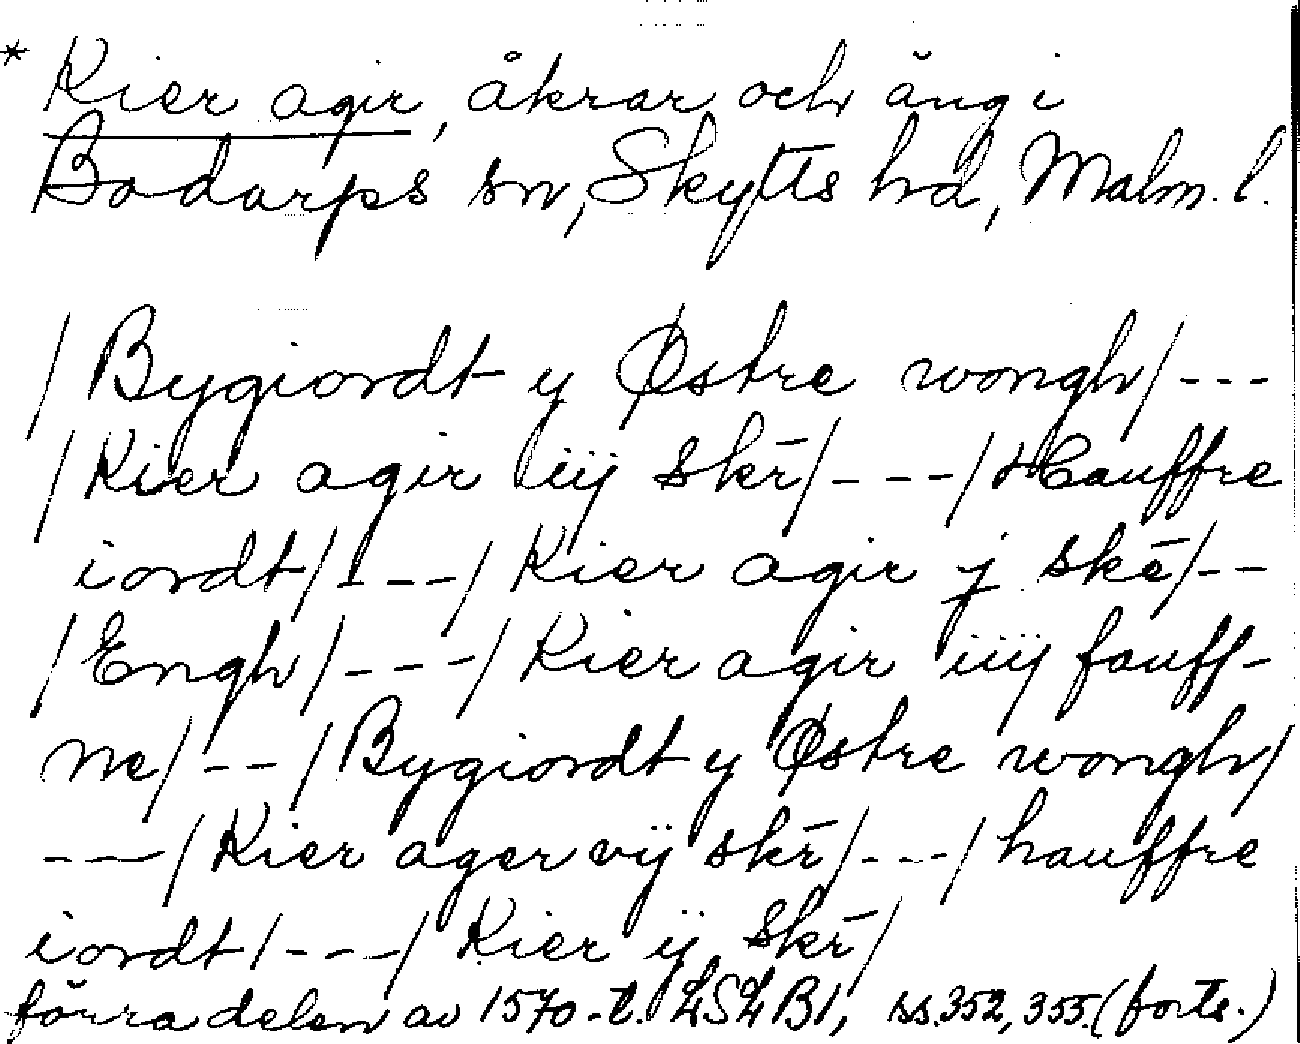 * Kier agir, åkrar och äng i
Bodarps sn, Skytts hd, Malm. l.
/Bygiordt y Østre wongh/---
/Kier agir iiij skr̄/---/Hauffre
iordt/---/Kier agir j skē/--
/Engh/---/Kier agir iiij fauff-
ne/--/Bygiordt y Østre wongh/
---/Kier ager vij skr̄/---/hauffre
iordt/---/Kier ij skr̄/
förra delen av 1570-t. LSLB1, ss. 352, 355. (forts.)